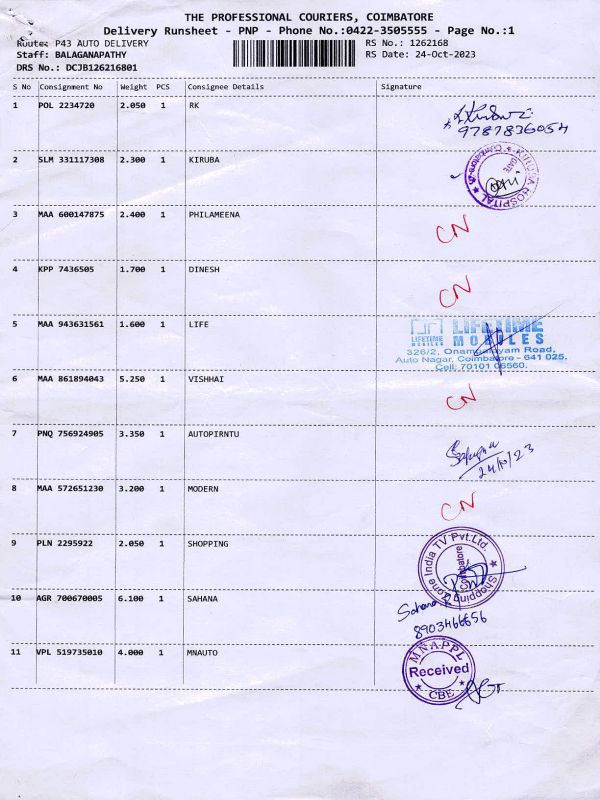 THE PROFESSIONAL COURIERS, COIMBATORE
Delivery Runsheet - PNP - Phone No.:0422-3505555 - Page No.:1
Route: P43 AUTO DELIVERY RS No.: 1262168
Staff: BALAGANAPATHY RS Date: 24-Oct-2023
DRS No.: DCJB126216801
S No Consignment No Weight PCS Consignee Details Signature
1 POL 2234720 2.050 1 RK
9787836054
2 SLM 331117308 2.300 1 KIRUBA
KIRUBA HOSPITAL
DATE
3 MAA 600147875 2.400 1 PHILAMEENA CN
4 KPP 7436505 1.700 1 DINESH CN
5 MAA 943631561 1.600 1 LIFE
LIFETIME
MOBILES
LIFETIME
MOBILES
326/2, Onampalayam Road,
Auto Nagar, Coimbatore - 641 025.
Cell: 70101 06560.
6 MAA 861894043 5.250 1 VISHHAI CN
7 PNQ 756924905 3.350 1 AUTOPIRNTU
24/10/23
8 MAA 572651230 3.200 1 MODERN CN
9 PLN 2295922 2.050 1 SHOPPING
Shopping Zone India TV Pvt.Ltd.
Coimbatore
10 AGR 700670005 6.100 1 SAHANA Sahana
8903466656
11 VPL 519735010 4.000 1 MNAUTO
MNAPPL
Received
CBE